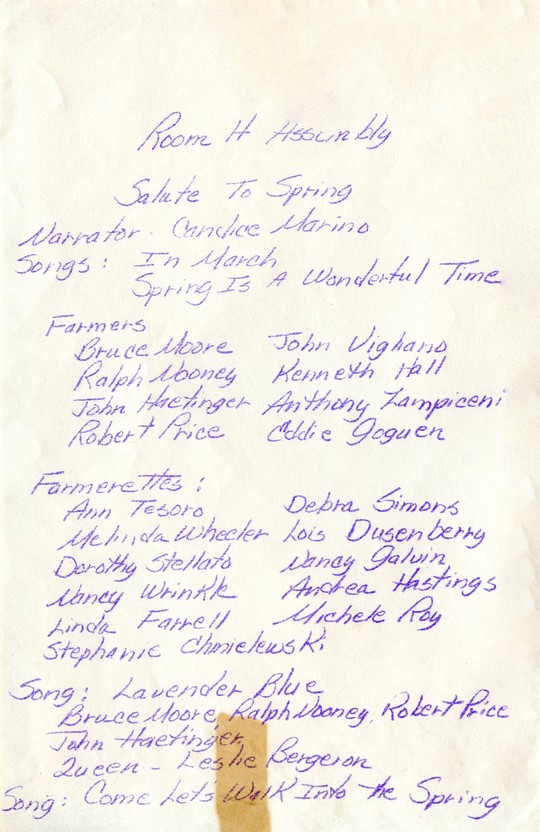 Room H Assembly
Salute To Spring
Narrator - Candice Marino
Songs: In March
Spring Is A Wonderful Time
Farmers
Bruce Moore John Vigliano
Ralph Nooney Kenneth Hall
John Haetinger Anthony Zampiceni
Robert Price Eddie Goguen
Farmerettes:
Ann Tesoro Debra Simons
Melinda Wheeler Lois Dusenberry
Dorothy Stellato Nancy Galvin
Nancy Wrinkle Andrea Hastings
Linda Farrell Michele Roy
Stephanie Chmielewski
Song: Lavender Blue
Bruce Moore, Ralph Nooney, Robert Price
John Haetinger,
Queen - Leslie Bergeron
Song: Come Lets Walk Into the Spring